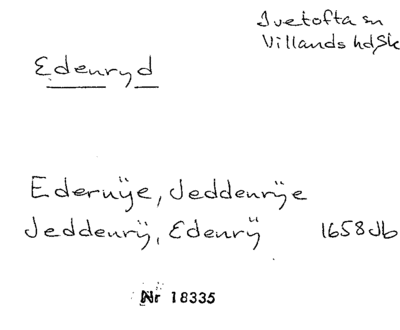 Ivetofta sn
Villands hd, Sk
Edenryd
Edernÿe, Jeddenrÿe
Jeddenrÿ, Edenrÿ 1658 Jb
Nr 18335